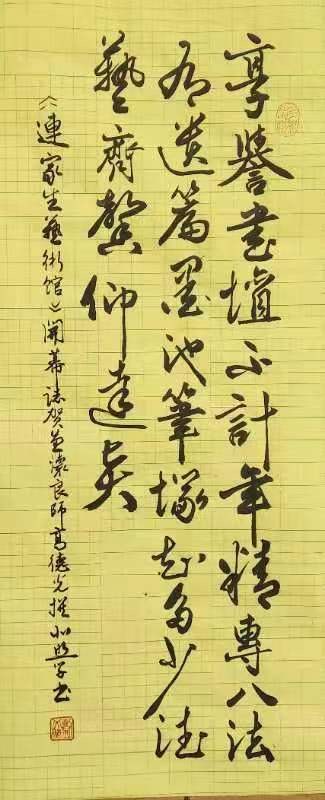 享譽書壇不計年精專八法
有遺篇墨池筆塚知多少德
藝齊馨仰達
《連家生藝術館》開幕誌賀並懷良師高德光撰